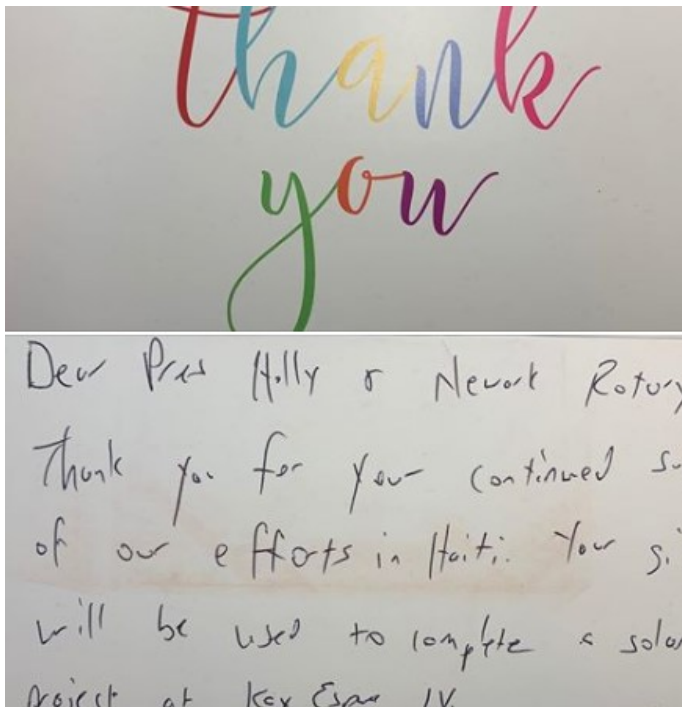 thank
you
Dear Pres Holly & Newark Rotary
Thank you for your continued su
of our efforts in Haiti. Your gi
will be used to complete a solar
project at